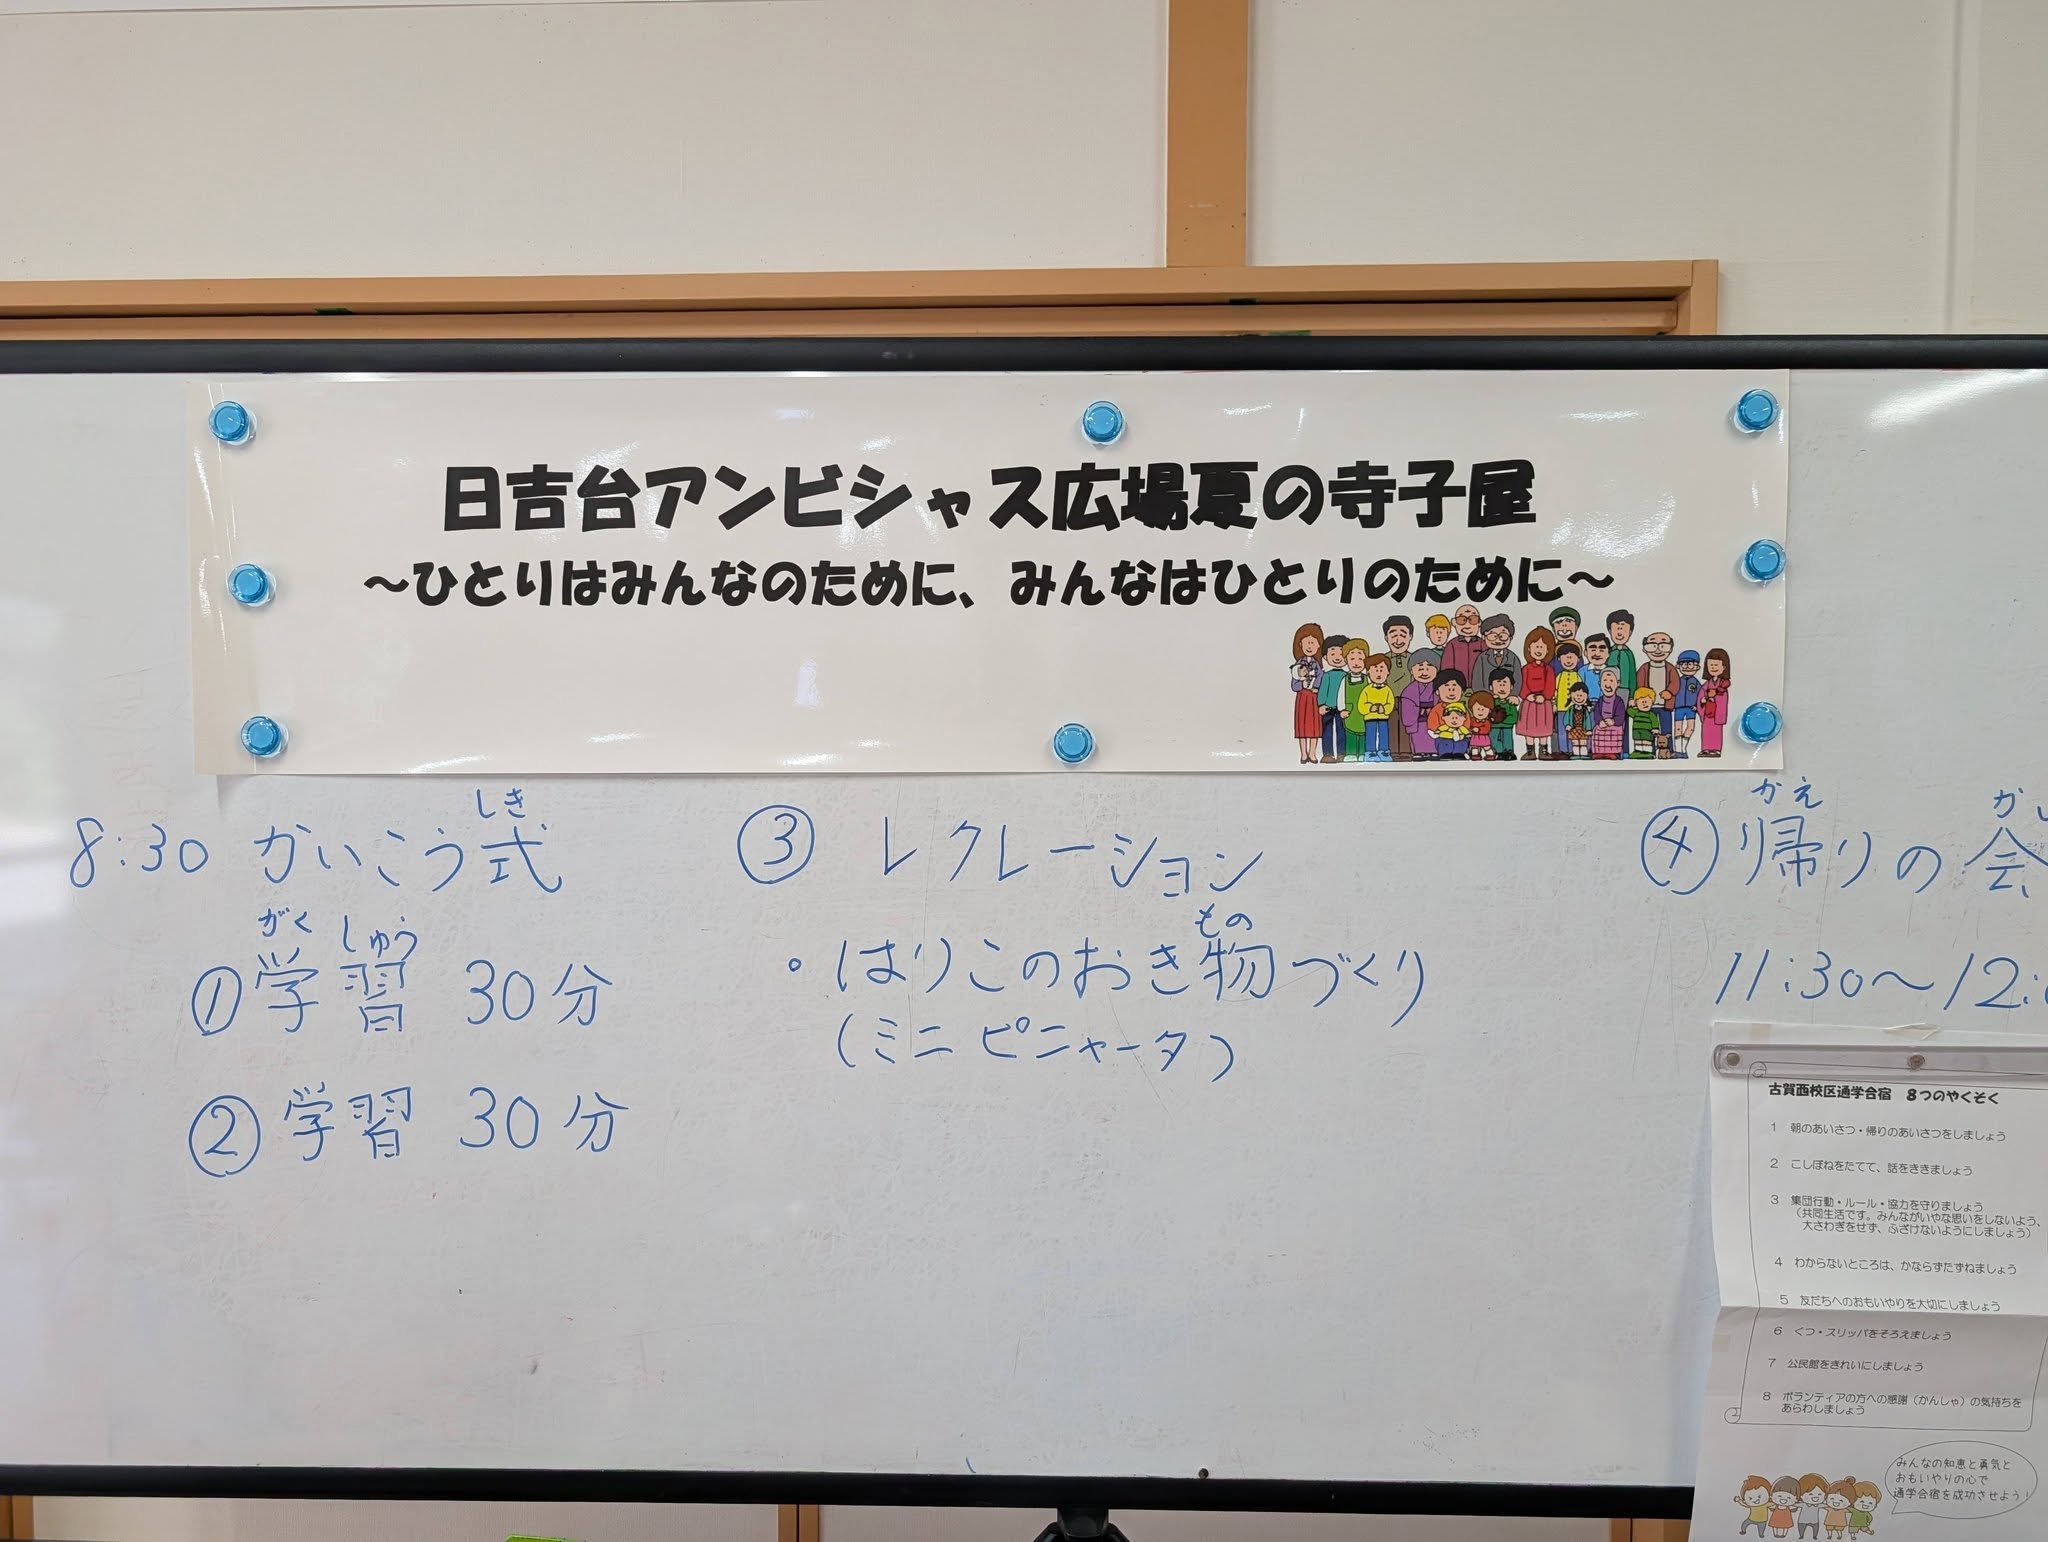 日吉台アンビシャス広場夏の寺子屋
～ひとりはみんなのために、みんなはひとりのために～
しき
8:30 かいこう式
がくしゅう
①学習 30分
②学習 30分
③ レクレーション
もの
・はりこのおき物づくり
(ミニ ピニャータ)
かえ か
④帰りの会
11:30～12:
古賀西校区通学合宿 8つのやくそく
1 朝のあいさつ・帰りのあいさつをしましょう
2 こしぼねをたてて、話をききましょう
3 集団行動・ルール・協力を守りましょう
（共同生活です。みんながいやな思いをしないよう、
大さわぎをせず、ふざけないようにしましょう）
4 わからないところは、かならずたずねましょう
5 友だちへのおもいやりを大切にしましょう
6 くつ・スリッパをそろえましょう
7 公民館をきれいにしましょう
8 ボランティアの方への感謝（かんしゃ）の気持ちを
あらわしましょう
みんなの知恵と勇気と
おもいやりの心で
通学合宿を成功させよう！